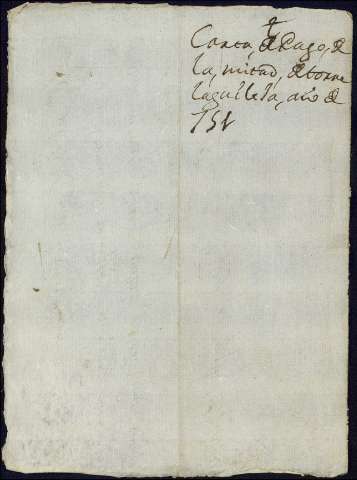 Carta, de Pago, de
la, mitad, de torre
laguileta, año de
751